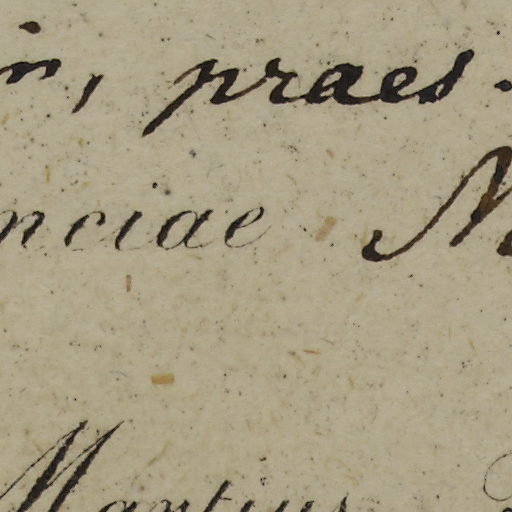 in, praes.
nciae M
Martius